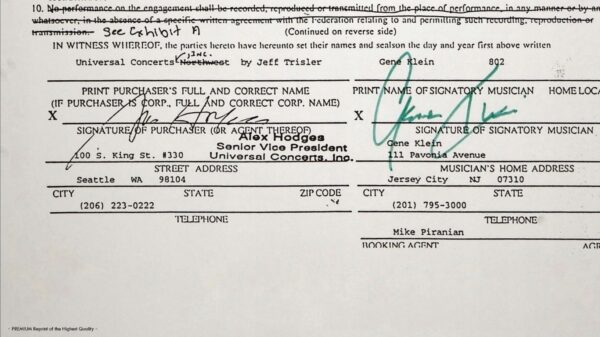 10. No performance on the engagement shall be recorded, reproduced or transmitted from the place of performance, in any manner or by any
whatsoever, in the absence of a specific written agreement with the Federation relating to and permitting such recording, reproduction or
transmission. See Exhibit A (Continued on reverse side)
IN WITNESS WHEREOF, the parties hereto have hereunto set their names and seals on the day and year first above written
Universal Concerts, INC. Northwest by Jeff Trisler Gene Klein 802
PRINT PURCHASER'S FULL AND CORRECT NAME PRINT NAME OF SIGNATORY MUSICIAN HOME LOCA
(IF PURCHASER IS CORP., FULL AND CORRECT CORP. NAME)
X X
SIGNATURE OF PURCHASER (OR AGENT THEREOF) SIGNATURE OF SIGNATORY MUSICIAN
Alex Hodges
Senior Vice President
Universal Concerts, Inc.
Gene Klein
100 S. King St. #330 111 Pavonia Avenue
STREET ADDRESS MUSICIAN'S HOME ADDRESS
Seattle WA 98104 Jersey City NJ 07310
CITY STATE ZIP CODE CITY STATE
(206) 223-0222 (201) 795-3000
TELEPHONE TELEPHONE
Mike Piranian
BOOKING AGENT AGR
- PREMIUM Reprint of the Highest Quality -